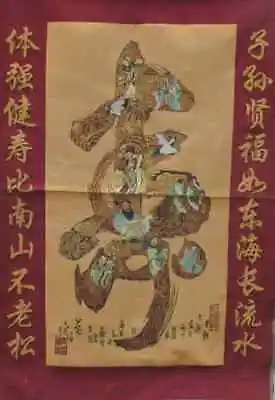 子孙贤福如东海长流水
寿
体强健寿比南山不老松